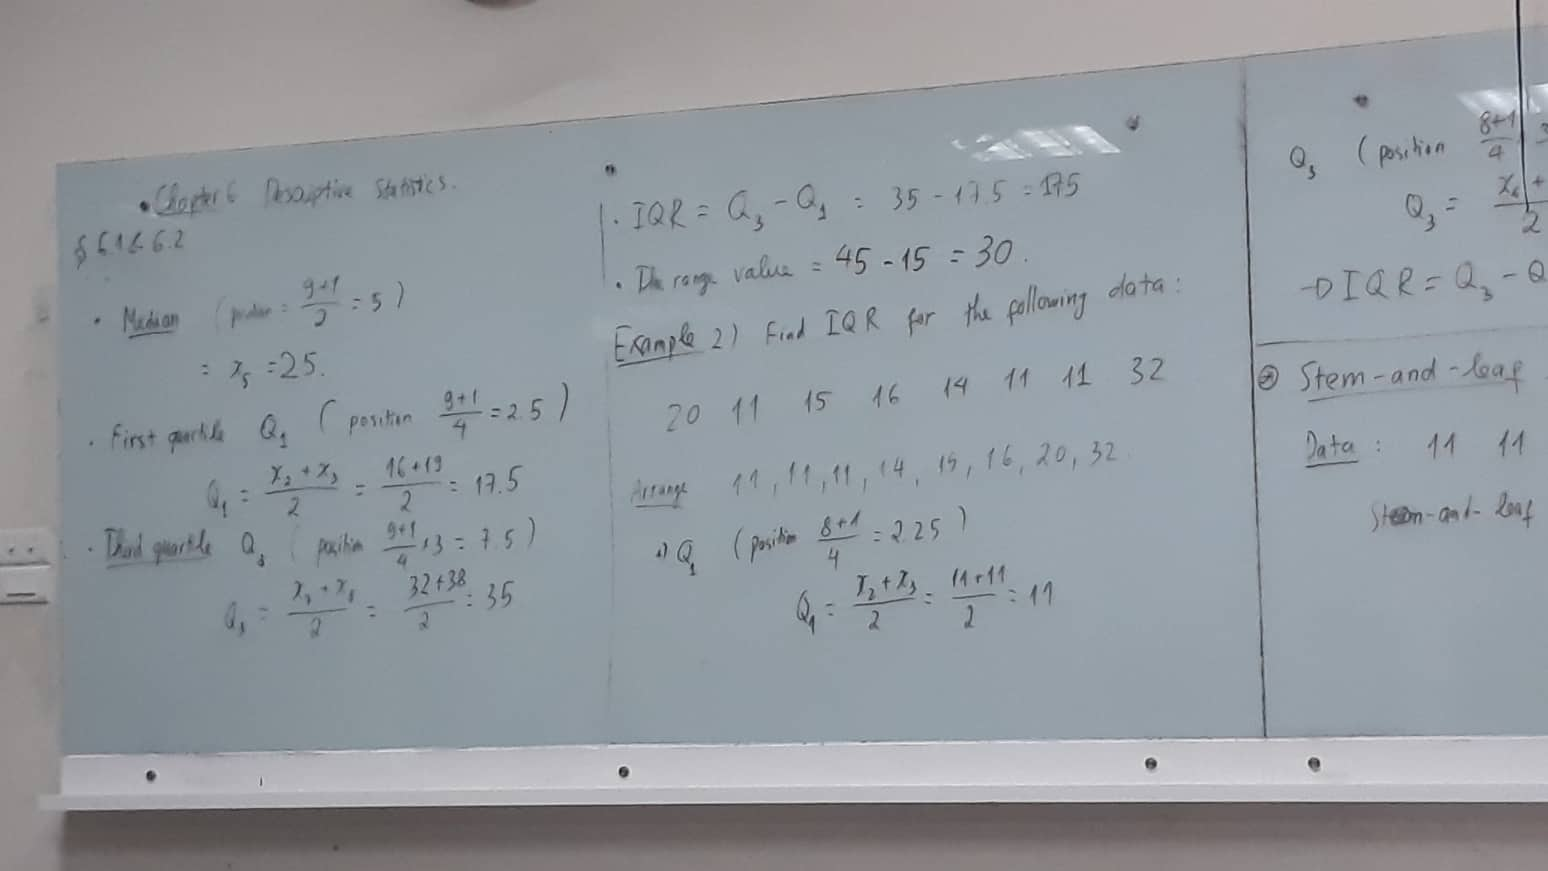 • Chapter 6 Descriptive Statistics.
§ 6.1 & 6.2
• Median ( position = 9+1/2 = 5 )
= x₅ = 25.
• First quartile Q₁ ( position 9+1/4 = 2.5 )
Q₁ = x₂ + x₃/2 = 16+19/2 = 17.5
• Third quartile Q₃ ( position 9+1/4 ×3 = 7.5 )
Q₃ = x₇ + x₈/2 = 32+38/2 = 35
• IQR = Q₃ - Q₁ = 35 - 17.5 = 17.5
• The range value = 45 - 15 = 30.
Example 2) Find IQR for the following data :
20 11 15 16 14 11 11 32
Arrange 11, 11, 11, 14, 15, 16, 20, 32.
Q₁ ( position 8+1/4 = 2.25 )
Q₁ = x₂ + x₃/2 = 11+11/2 = 11
Q₃ ( position 8+1/4 3
Q₃ = x₆ +/2
→ IQR = Q₃ - Q
Stem-and-leaf
Data : 11 11
Stem-and-leaf